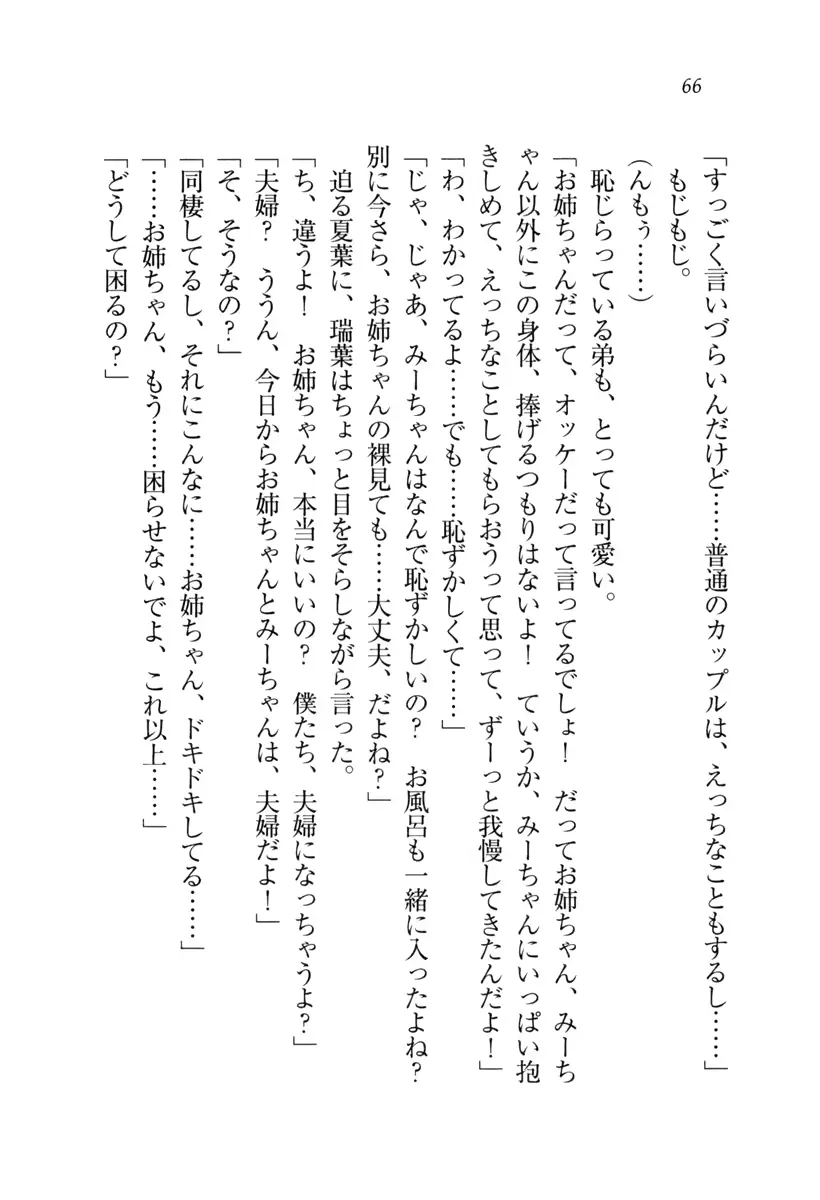 66
「すっごく言いづらいんだけど……普通のカップルは、えっちなこともするし……」
もじもじ。
（んもぅ……）
恥じらっている弟も、とっても可愛い。
「お姉ちゃんだって、オッケーだって言ってるでしょ！　だってお姉ちゃん、みーち
ゃん以外にこの身体、捧げるつもりはないよ！　ていうか、みーちゃんにいっぱい抱
きしめて、えっちなことしてもらおうって思って、ずーっと我慢してきたんだよ！」
「わ、わかってるよ……でも……恥ずかしくて……」
「じゃ、じゃあ、みーちゃんはなんで恥ずかしいの？　お風呂も一緒に入ったよね？
別に今さら、お姉ちゃんの裸見ても……大丈夫、だよね？」
迫る夏葉に、瑞葉はちょっと目をそらしながら言った。
「ち、違うよ！　お姉ちゃん、本当にいいの？　僕たち、夫婦になっちゃうよ？」
「夫婦？　ううん、今日からお姉ちゃんとみーちゃんは、夫婦だよ！」
「そ、そうなの？」
「同棲してるし、それにこんなに……お姉ちゃん、ドキドキしてる……」
「……お姉ちゃん、もう……困らせないでよ、これ以上……」
「どうして困るの？」